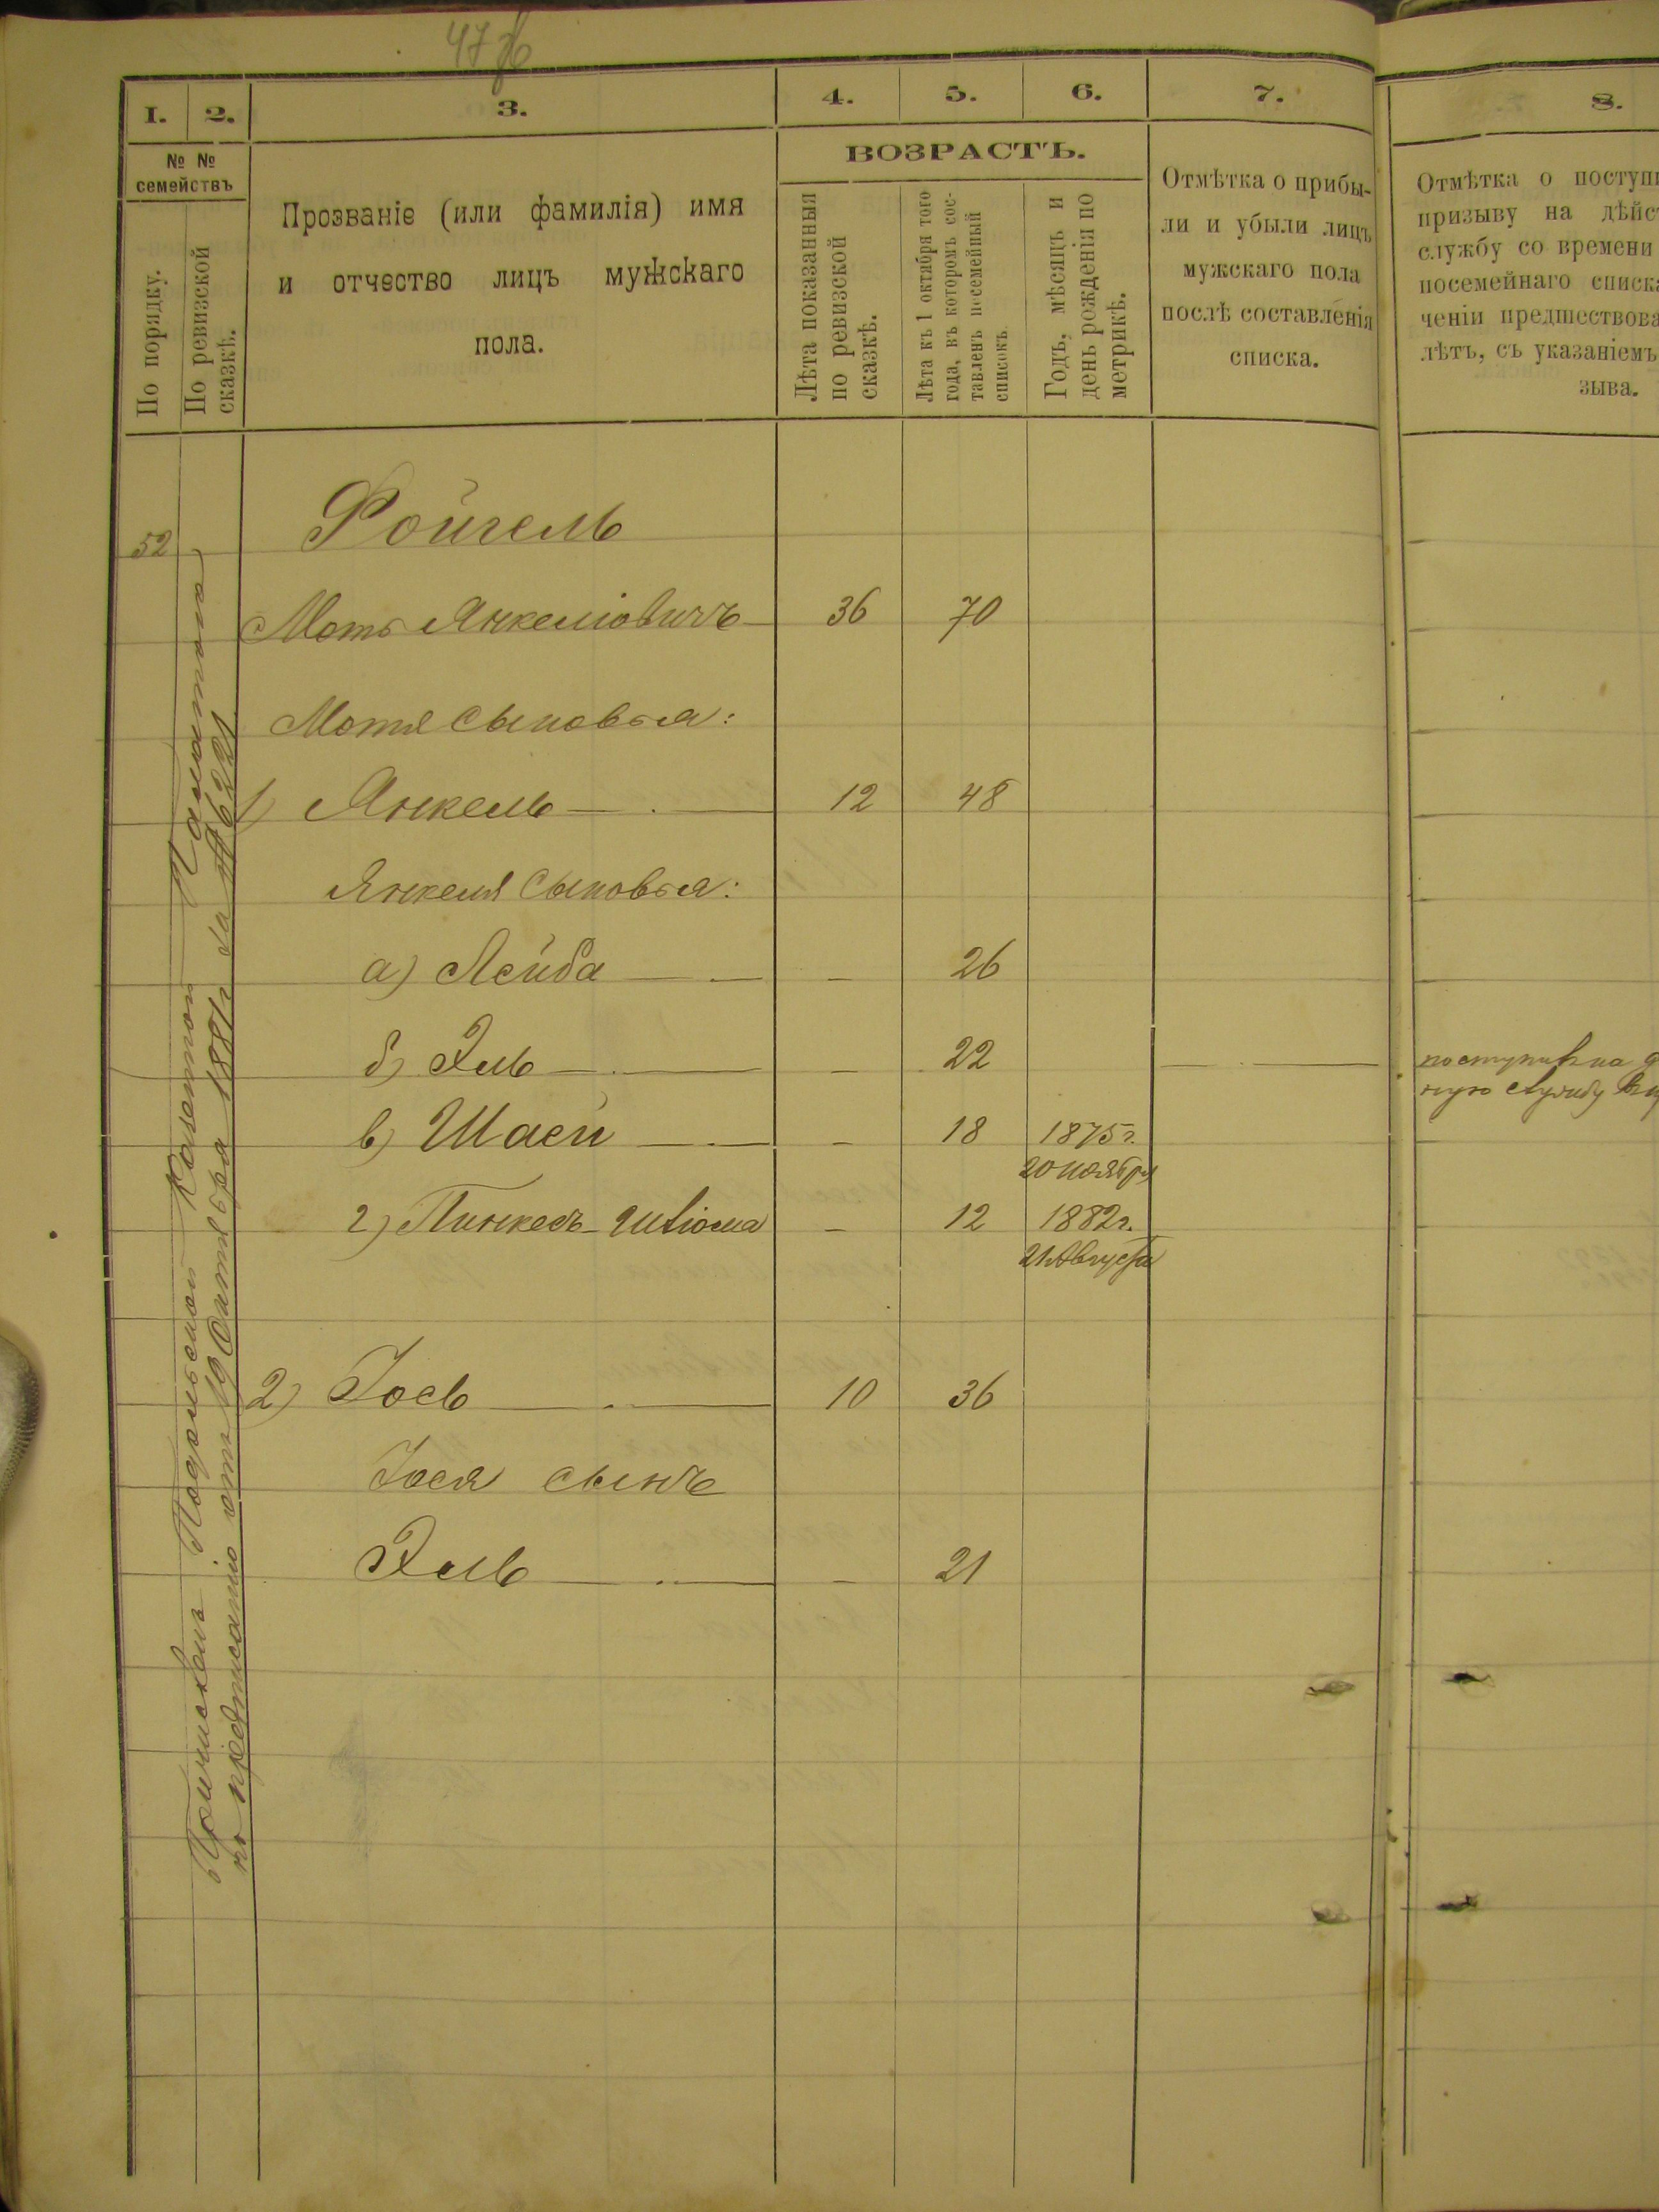 47
1. 2. 3. 4. 5. 6. 7. 8.
№ №
семействъ
По порядку.
По ревизской
сказкѣ.
Прозваніе (или фамилія) имя
и отчество лицъ мужскаго
пола.
ВОЗРАСТЪ.
Лѣта показанныя
по ревизской
сказкѣ.
Лѣта къ 1 октября того
года, въ которомъ сос-
тавленъ посемейный
списокъ.
Годъ, мѣсяцъ и
день рожденія по
метрикѣ.
Отмѣтка о прибы-
ли и убыли лицъ
мужскаго пола
послѣ составленія
списка.
Отмѣтка о поступ
призыву на дѣйс
службу со времени
посемейнаго списк
ченіи предшествова
лѣтъ, съ указаніемъ
зыва.
52 Фойгель
Моть Янкеліовичъ 36 70
Мотя сыновья:
1) Янкель 12 48
Янкеля сыновья:
а) Лейба — 26
б) Эль — 22 поступилъ на д
ную службу въ
в) Шаей — 18 1875 г.
20 ноября
г) Пинкесъ-Шліома — 12 1882 г.
21 Августа
2) Іось 10 36
Іося сынъ
Эль — 21
Причисленъ Подольской Казенной Палатою
по предписанію отъ 19 Октября 1881 г за № 6221